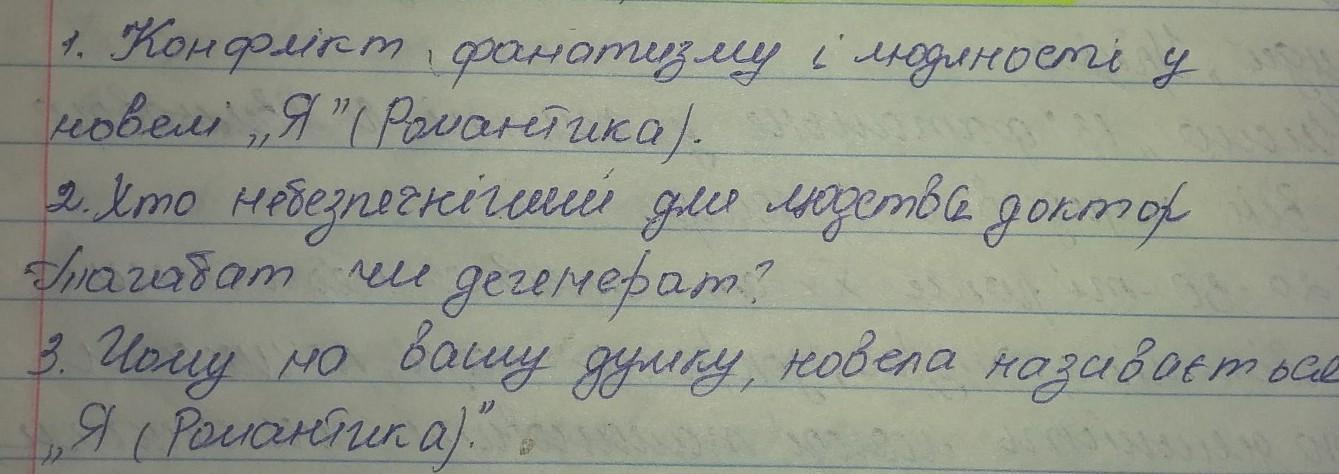 1. Конфлікт фанатизму і людяності у
новелі „Я” (Романтика).
2. Хто небезпечніший для людства доктор
Тагабат чи дегенерат?
3. Чому на вашу думку, новела називається
„Я (Романтика).”